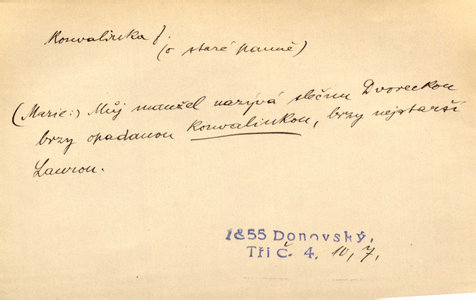 Konvalinka f.
(o staré panně)
(Marie:) Můj manžel nazývá slečnu Dvoreckou
brzy opadanou konvalinkou, brzy nejstarší
Laurou.
1855 Donovský,
Tři č. 4. IV, 7.